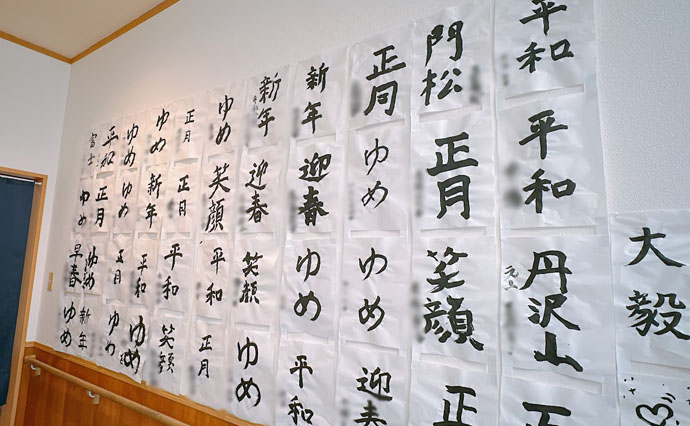 平和
平和
丹沢山
大毅
門松
正月
笑顔
正月
ゆめ
ゆめ
迎春
新年
迎春
ゆめ
平和
新年
迎春
笑顔
ゆめ
ゆめ
笑顔
平和
正月
正月
正月
平和
笑顔
ゆめ
新年
平和
ゆめ
ゆめ
ゆめ
正月
ゆめ
平和
正月
ゆめ
富士
ゆめ
早春
ゆめ
新年